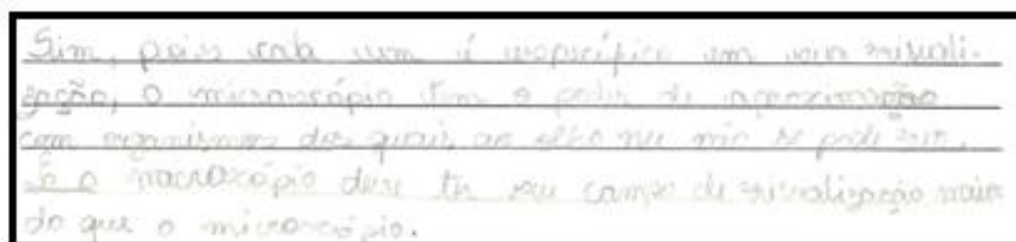 Sim, pois cada um é específico em sua visuali-
zação, o microscópio tem o poder de aproximação
com organismos dos quais ao olho nu não se pode ver.
Já o macroscópio deve ter seu campo de visualização maior
do que o microscópio.